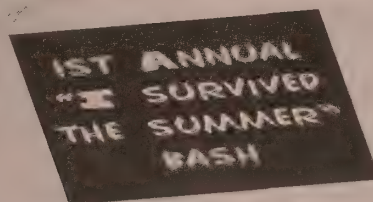 1ST ANNUAL
"I SURVIVED
THE SUMMER"
BASH